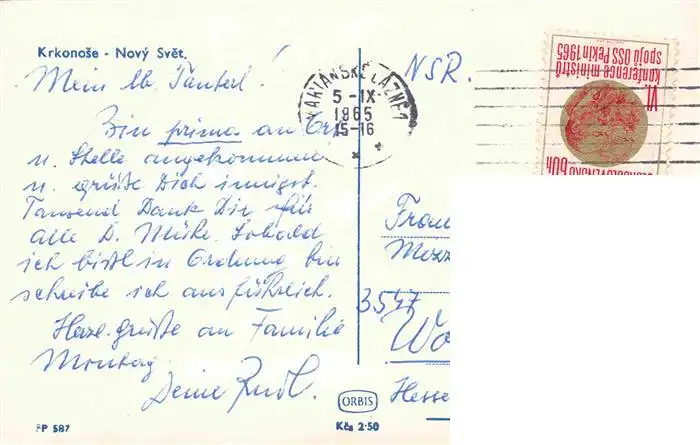 Krkonoše - Nový Svět.
Mein lb. Tanterl!
Bin prima an Ort
u. Stelle angekommen
u. grüße Dich innigst.
Tausend Dank Dir für
alle D. Mühe. Sobald
ich bissl in Ordnung bin
schreibe ich ausführlich.
Herzl. grüße an Familie
Montag.
Deine Rudl.
FP 587
ORBIS
Kčs 2·50
MARIÁNSKÉ LÁZNĚ 1
5 -IX
1965
15-16
NSR.
VI.
konference ministrů
spojů OSS Pekin 1965
ČESKOSLOVENSKO 60h
Frau
Mozz
3547
Wo
Hesse